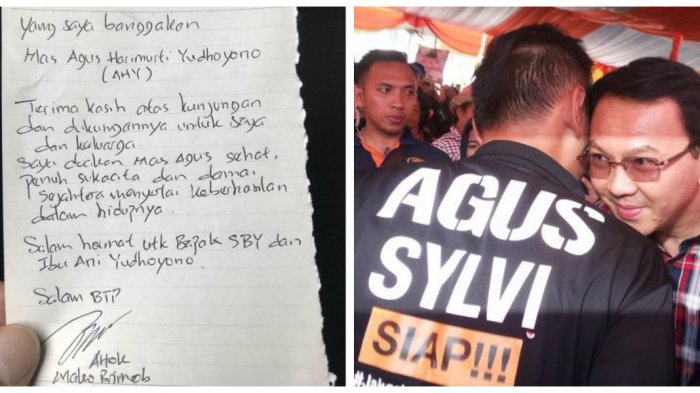 Yang saya banggakan
Mas Agus Harimurti Yudhoyono
(AHY)
Terima kasih atas kunjungan
dan dukungannya untuk saya
dan keluarga.
Saya doakan Mas Agus sehat,
penuh sukacita dan damai
sejahtera menyertai keberhasilan
dalam hidupnya.
Salam hormat utk Bapak SBY dan
Ibu Ani Yudhoyono.
Salam BTP
Ahok
Mako Brimob
AGUS
SYLVI
SIAP!!!